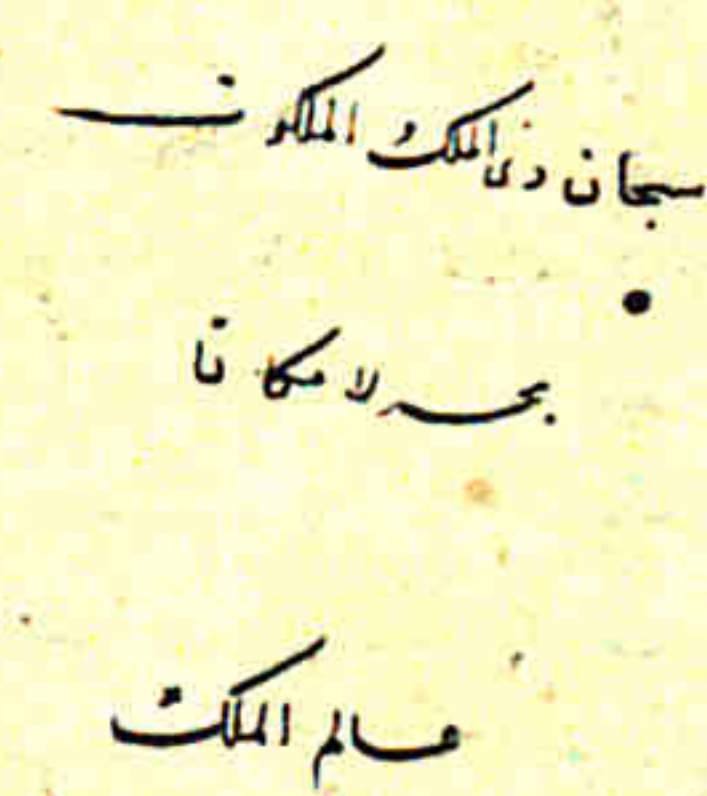 سبحان ذى الملك و الملكوت
بحر لامكانا
عالم الملك